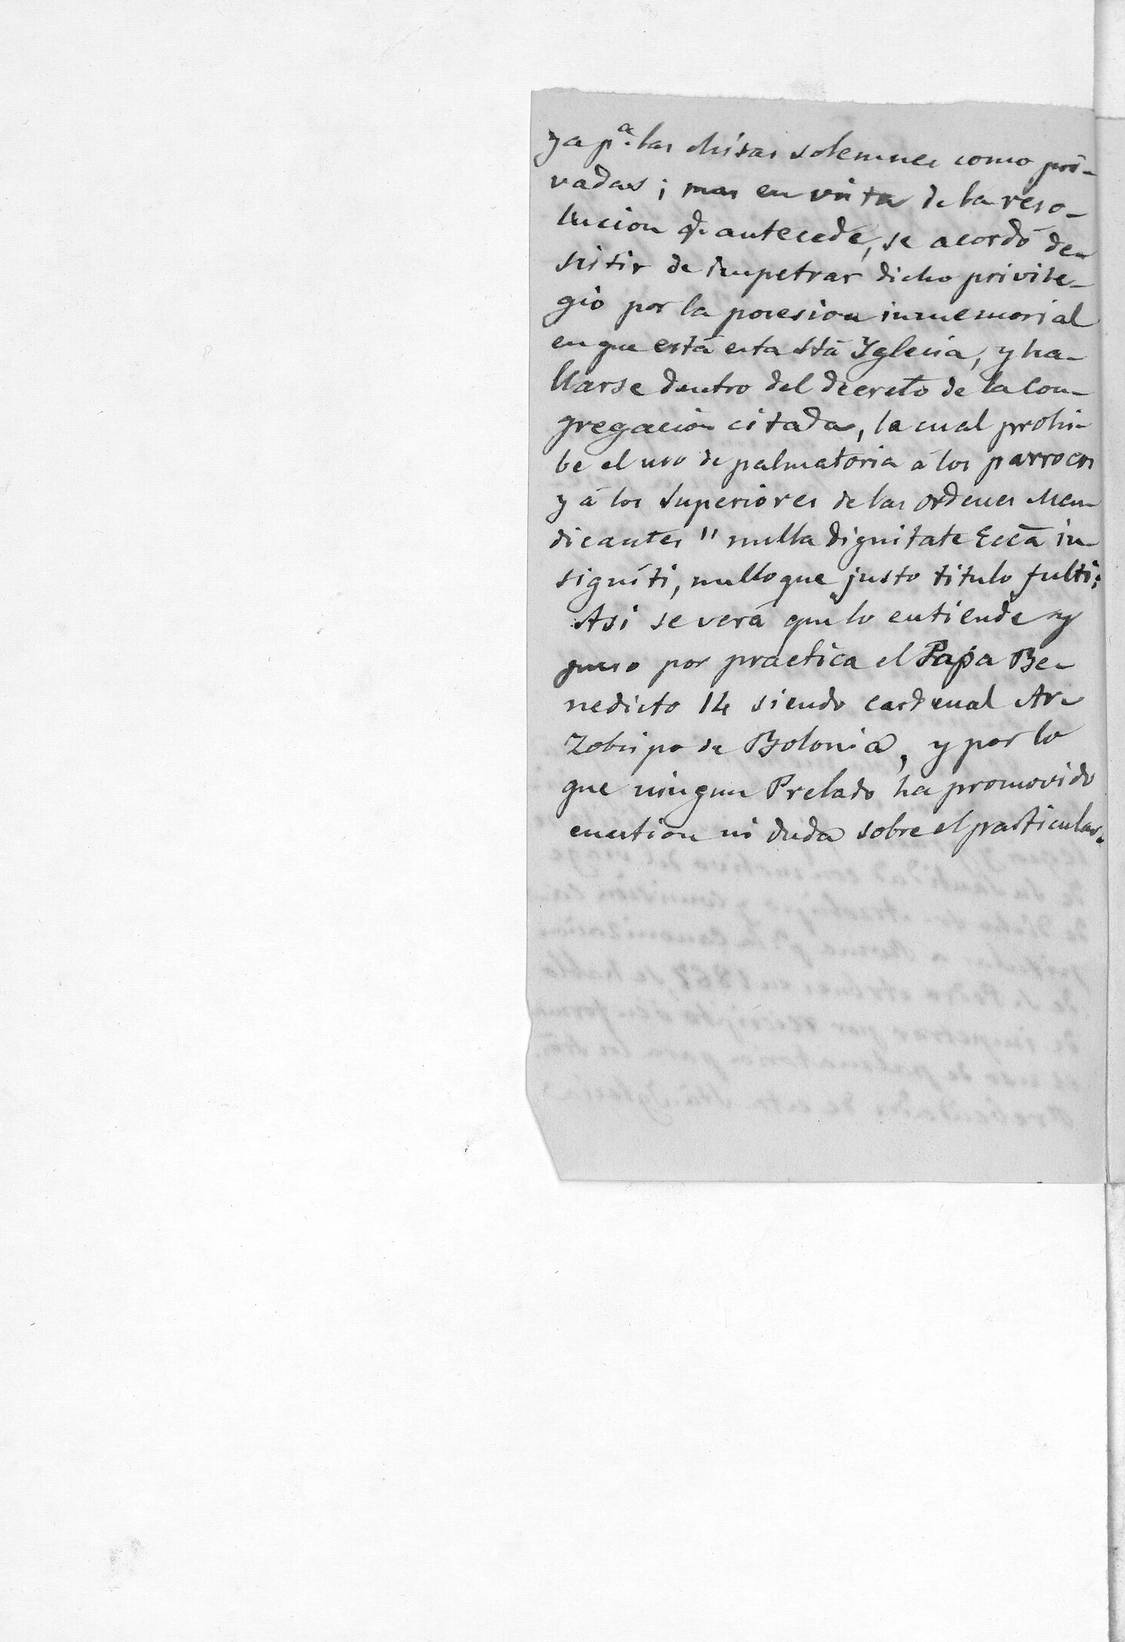 ya pª. las Misas solemnes como pri-
vadas; mas en vista de la reso-
lucion q. antecede, se acordó de-
sistir de impetrar dicho privile-
gio por la posesion inmemorial
en que está esta Stá Yglesia, y ha-
llarse dentro del decreto de la Con-
gregacion citada, la cual prohi-
be el uso de palmatoria á los parrocos
y á los Superiores de las Ordenes Men-
dicantes "nulla dignitate Eccã in-
signiti, nulloque justo titulo fulti;
Asi se verá que lo entiende y
puso por practica el Papa Be-
nedicto 14 siendo cardenal Ar-
zobispo de Bolonia, y por lo
que ningun Prelado ha promovido
cuestion ni duda sobre el particular.